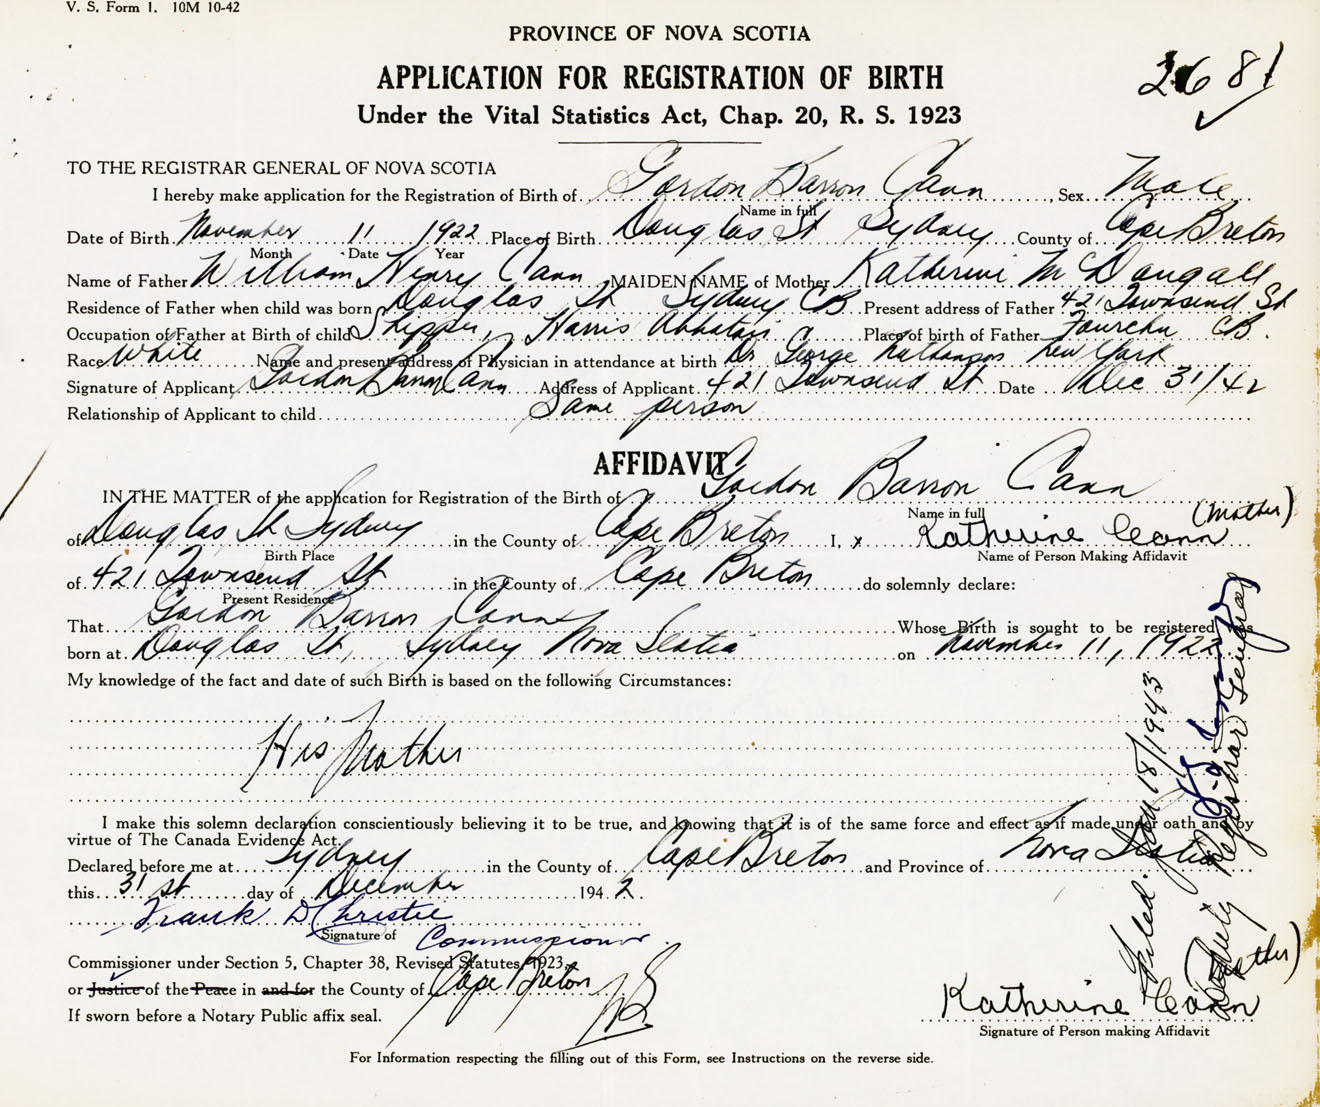 V. S. Form 1. 10M 10-42
PROVINCE OF NOVA SCOTIA
APPLICATION FOR REGISTRATION OF BIRTH
2681
Under the Vital Statistics Act, Chap. 20, R. S. 1923
TO THE REGISTRAR GENERAL OF NOVA SCOTIA
I hereby make application for the Registration of Birth of Gordon Barron Cann, Sex Male
Name in full
Date of Birth November 11 1922 Place of Birth Douglas St Sydney County of Cape Breton
Month Date Year
Name of Father William Henry Cann MAIDEN NAME of Mother Katherine McDougall
Residence of Father when child was born Douglas St Sydney CB Present address of Father 421 Townsend St
Occupation of Father at Birth of child Shipper, Harris Place of birth of Father Fourchu CB.
Race White Name and present address of Physician in attendance at birth Dr. George Nathanson New York
Signature of Applicant Gordon Barron Cann Address of Applicant 421 Townsend St Date Dec 31/42
Relationship of Applicant to child Same person
AFFIDAVIT
IN THE MATTER of the application for Registration of the Birth of Gordon Barron Cann
Name in full (Mother)
of Douglas St Sydney in the County of Cape Breton I, x Katherine Cann
Birth Place Name of Person Making Affidavit
of 421 Townsend St in the County of Cape Breton do solemnly declare:
Present Residence
That Gordon Barron Cann Whose Birth is sought to be registered was
born at Douglas St, Sydney Nova Scotia on November 11, 1922
My knowledge of the fact and date of such Birth is based on the following Circumstances:
His Mother
I make this solemn declaration conscientiously believing it to be true, and knowing that it is of the same force and effect as if made under oath and by
virtue of The Canada Evidence Act.
Declared before me at Sydney in the County of Cape Breton and Province of Nova Scotia
this 31st day of December 1942.
Frank D Christie
Signature of Commissioner
Commissioner under Section 5, Chapter 38, Revised Statutes, 1923,
or Justice of the Peace in and for the County of Cape Breton NS
If sworn before a Notary Public affix seal.
(Mother)
Katherine Cann
Signature of Person making Affidavit
For Information respecting the filling out of this Form, see Instructions on the reverse side.
Filed. Jan 18/1943
Deputy Registrar General